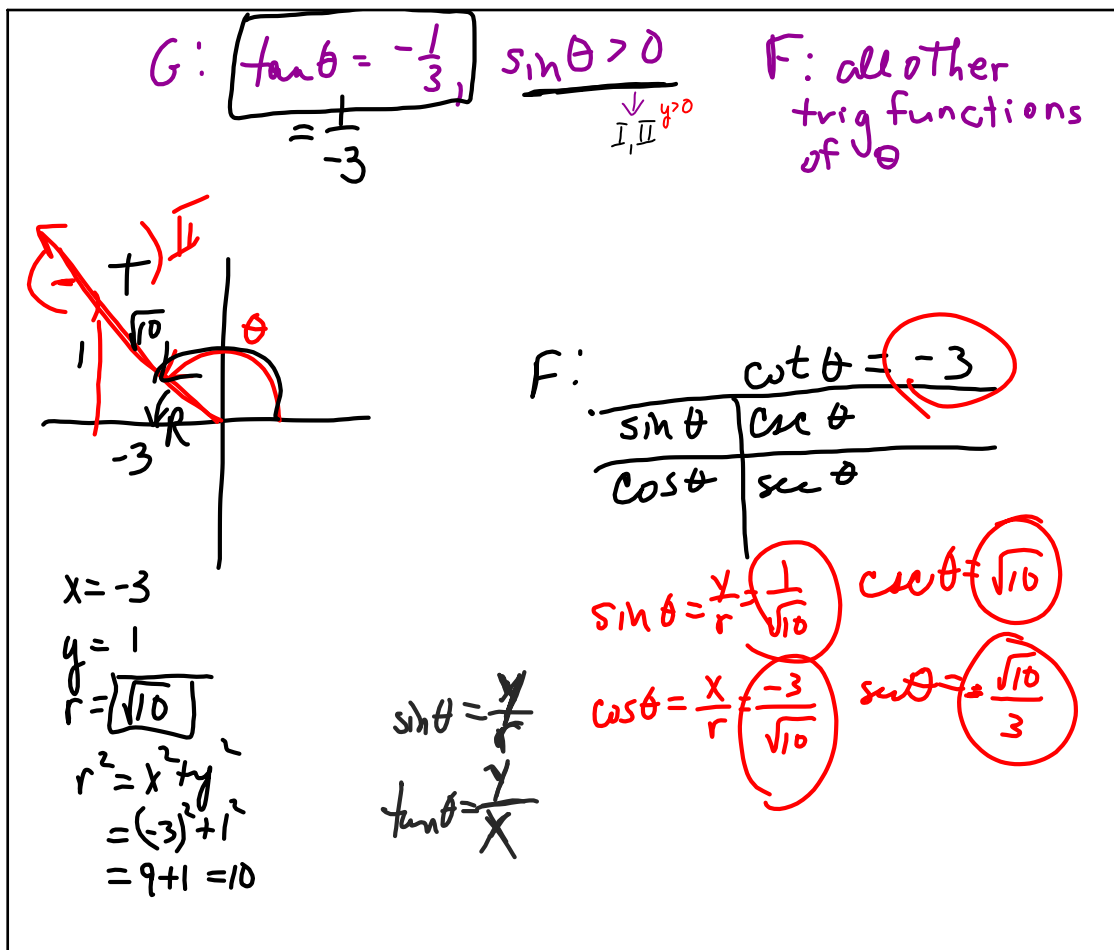 G: tanθ = -1/3, sinθ > 0
= 1/-3
I, II y>0
F: all other
trig functions
of θ
II
+
-
√10
1
θ
R
-3
F:
cot θ = -3
sin θ csc θ
cos θ sec θ
x = -3
y = 1
r = √10
r² = x² + y²
= (-3)² + 1²
= 9+1 = 10
sin θ = y/r
tan θ = y/x
sin θ = y/r = 1/√10 csc θ = √10
cos θ = x/r = -3/√10 sec θ = - √10/3